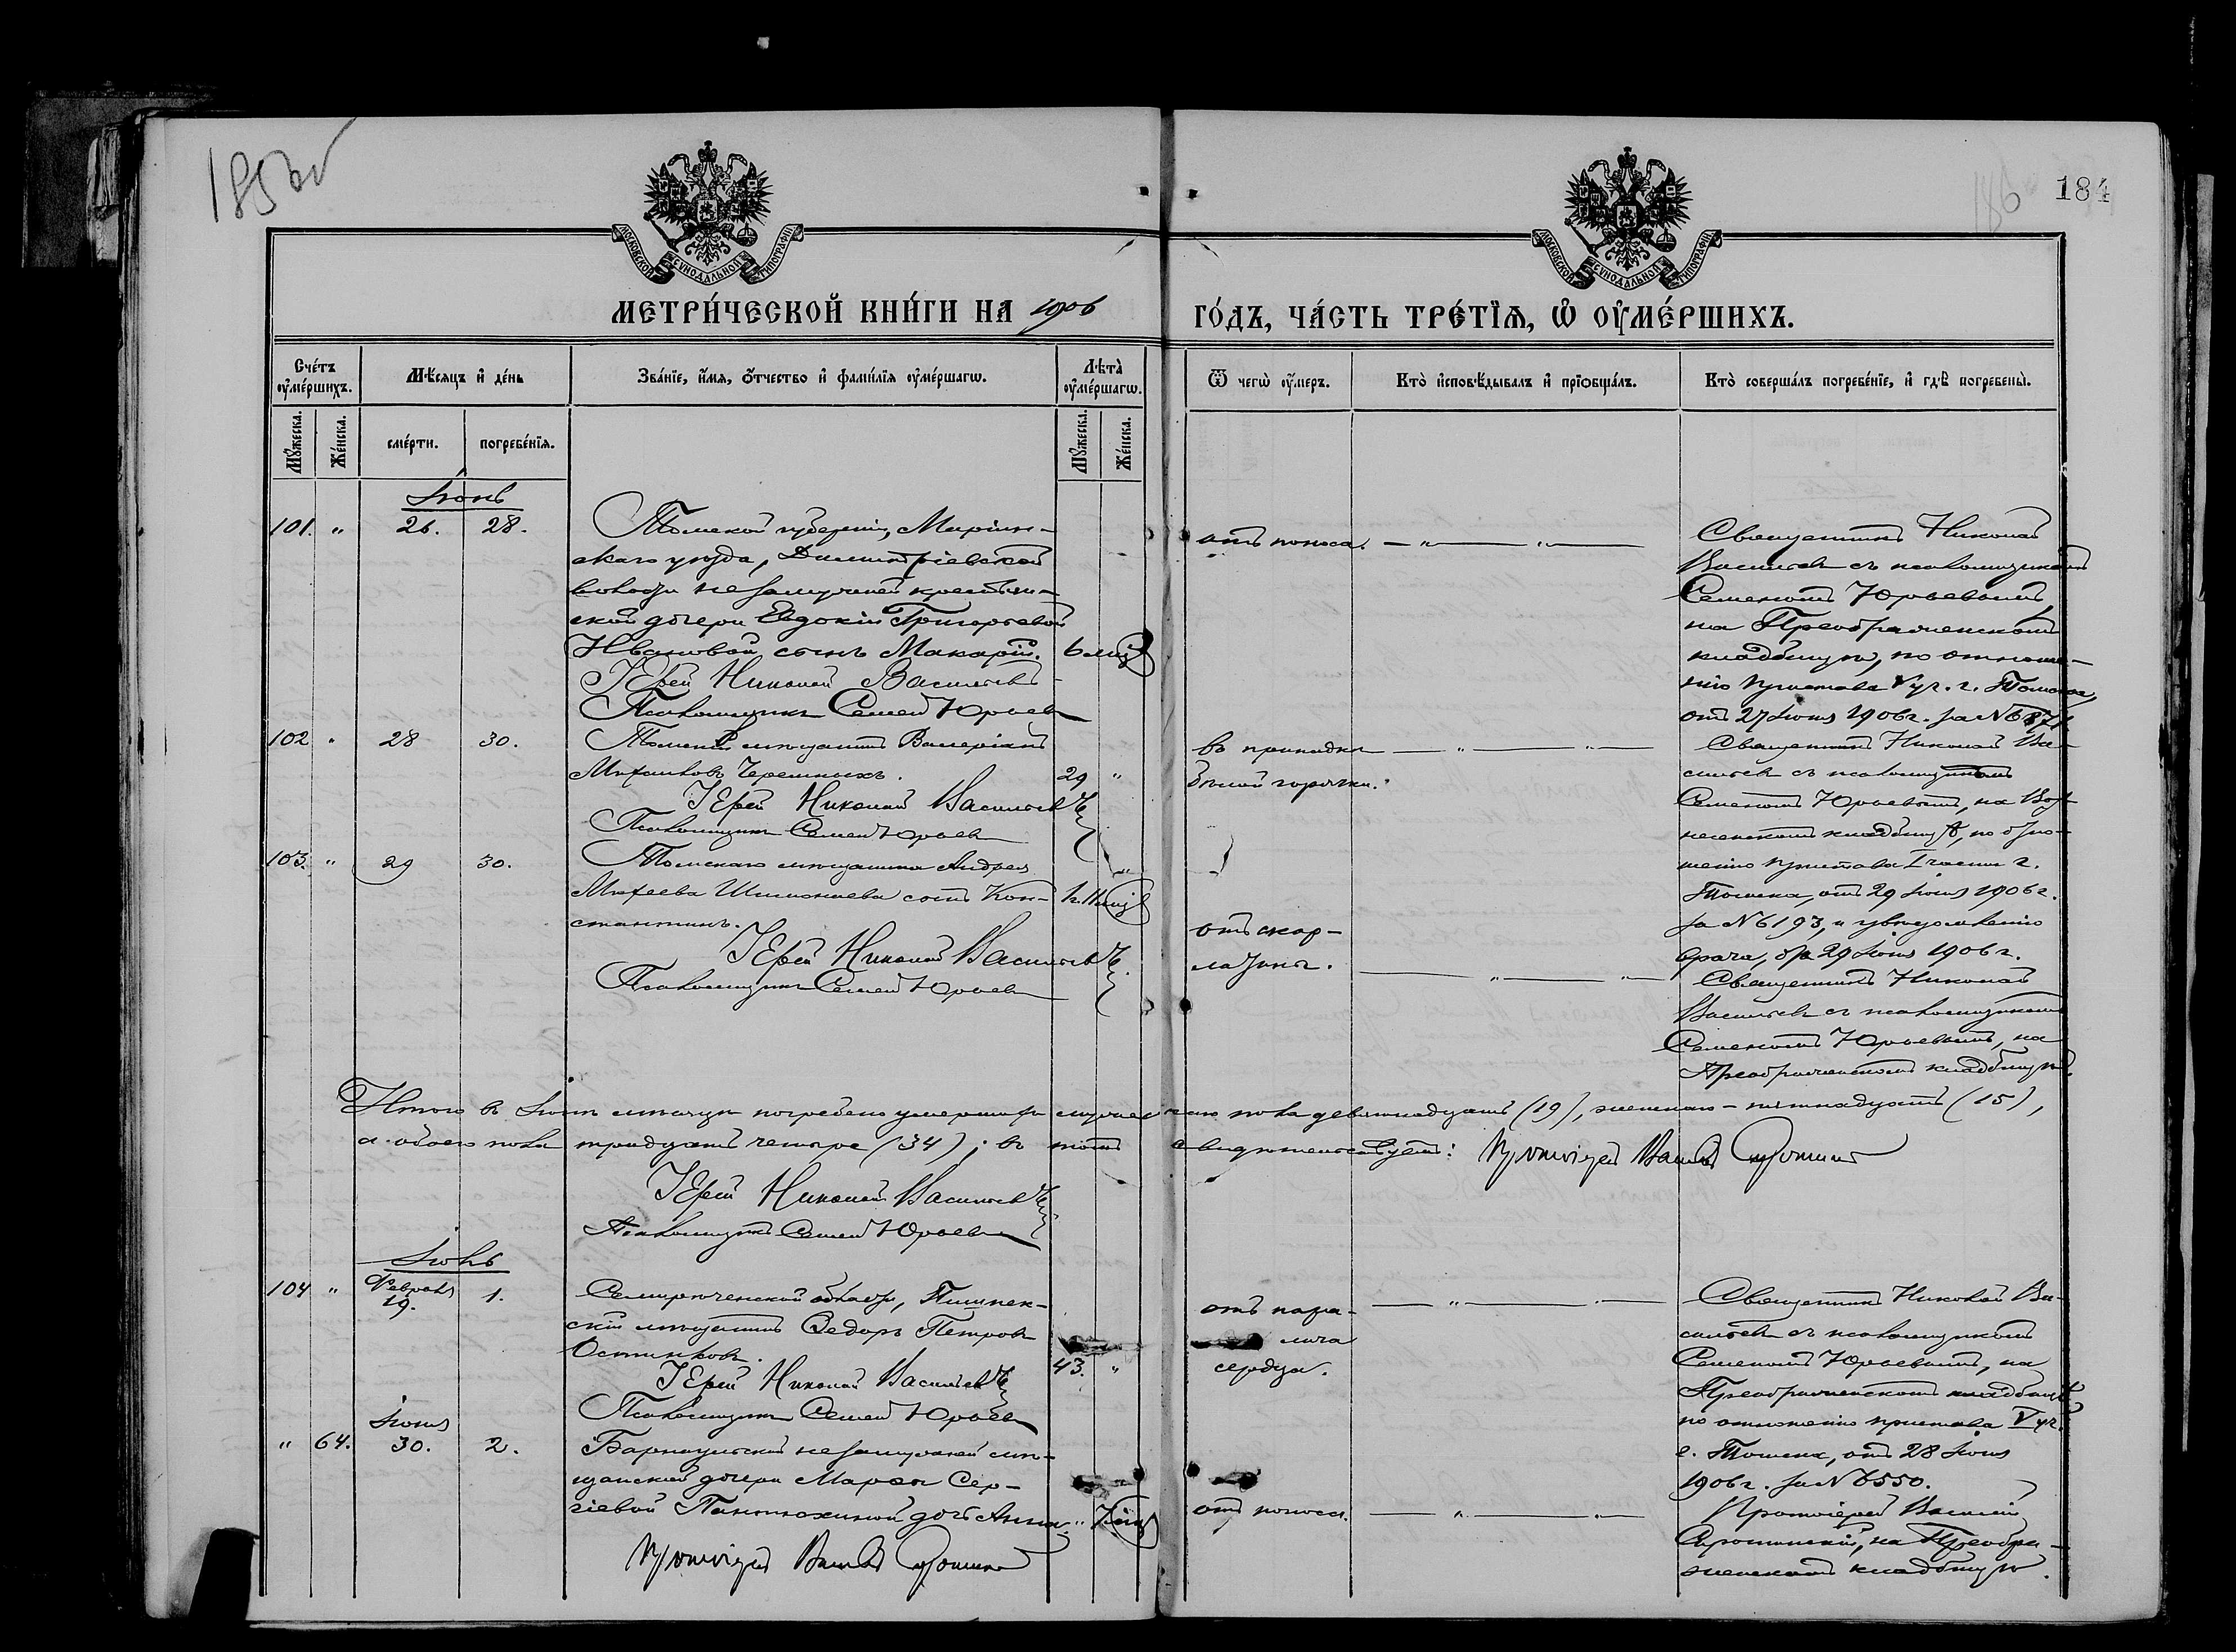 185об
186
184
МОСКОВСКОЙ СѴНОДАЛЬНОЙ ТИПОГРАФІИ
МОСКОВСКОЙ СѴНОДАЛЬНОЙ ТИПОГРАФІИ
МЕТРИ́ЧЕСКОЙ КНИ́ГИ НА 1906
ГО́ДЪ, ЧА́СТЬ ТРЕ́ТЇѦ, Ѡ ОУМЕ́РШИХЪ.
Сче́тъ оуме́ршихъ.
Мѣ́сяцъ и де́нь
Зва́нїе, и́мя, о́тчество и фами́лїя оуме́ршагѡ.
Лѣта̀ оуме́ршагѡ.
Ѿ чегѡ̀ оу́меръ.
Кто̀ исповѣ́дывалъ и прїѡбща́лъ.
Кто̀ соверша́лъ погребе́нїе, и гдѣ̀ погребены̀.
Му́жеска.
Же́нска.
сме́рти.
погребе́нїя.
Му́жеска.
Же́нска.
Іюнь
101. " 26. 28.
Томской губерніи, Маріин-
скаго уѣзда, Димитріевской
волости незамужней крестьян-
ской дочери Евдокіи Григорьевой
Ивановой сынъ Макарій. 6 мѣс
Іерей Николай Васильевъ
Псаломщикъ Семенъ Юрьевъ
отъ поноса. — " — " —
Священникъ Николай
Васильевъ съ псаломщикомъ
Семеномъ Юрьевымъ
на Преображенскомъ
кладбищѣ, по отноше-
нію пристава V уч. г. Томска,
отъ 27 Іюня 1906 г. за №
102 " 28 30.
Томскій мѣщанинъ Валеріанъ
Михаиловъ Черемныхъ. 29 "
Іерей Николай Васильевъ
Псаломщикъ Семенъ Юрьевъ
въ припадкѣ — " — " —
бѣлой горячки.
Священникъ Николай Ва-
сильевъ съ псаломщикомъ
Семеномъ Юрьевымъ, на Воз-
несенскомъ кладбищѣ, по отно-
шенію пристава I части г.
Томска, отъ 29 Іюня 1906 г.
за № 6193, и увѣдомленію
врача, отъ 29 Іюня 1906 г.
103. " 29 30.
Томскаго мѣщанина Андрея
Михеева сынъ Кон- 1 г. 11 мѣс "
стантинъ.
Іерей Николай Васильевъ
Псаломщикъ Семенъ Юрьевъ
отъ скар-
латины. — " — " —
Священникъ Николай
Васильевъ съ псаломщикомъ
Семеномъ Юрьевымъ, на
Преображенскомъ кладбищѣ.
Итого въ Іюнѣ мѣсяцѣ погребено умершихъ мужескаго пола девятнадцать (19), женскаго – пятнадцать (15),
а обоего пола тридцать четыре (34); въ томъ свидѣтельствуетъ: Протоіерей Василій Сиротинскій
Іерей Николай Васильевъ
Псаломщикъ Семенъ Юрьевъ
Іюль
104 " Февраля 19. 1.
Семирѣченской области, Пишпек-
скій мѣщанинъ Ѳедоръ Петровъ
43. "
Іерей Николай Васильевъ
Псаломщикъ Семенъ Юрьевъ
отъ пара- — " — " —
лича
сердца.
Священникъ Николай Ва-
сильевъ съ псаломщикомъ
Семеномъ Юрьевымъ, на
Преображенскомъ кладбищѣ,
по отношенію пристава V уч.
г. Томска, отъ 28 Іюня
1906 г. за № 6550.
" 64. Іюня 30. 2.
Барнаульской незамужней мѣ-
щанской дочери Марѳы Сер-
гіевой Пантюхиной дочь Анна. " 7 мѣс
Протоіерей Василій Сиротинскій
отъ поноса. — " — " —
Протоіерей Василій
Сиротинскій, на Преобра-
женскомъ кладбищѣ.